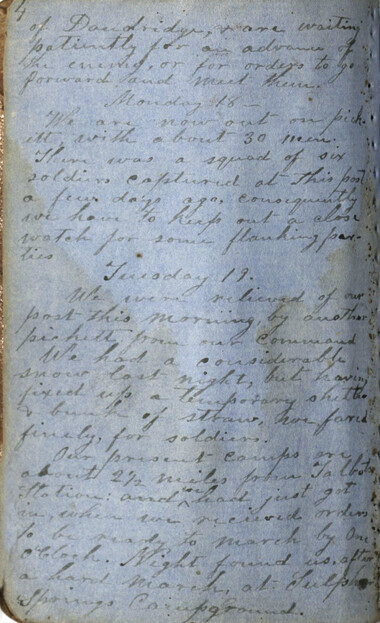 4
of Dandridge, & are waiting
patiently for an advance of
the enemy, or for orders to go
forward and meet them.
Monday 18 -
We are now out on pick-
ett with about 30 men.
There was a squad of six
soldiers captured at this post
a few days ago, consequently
we have to keep out a close
watch for some flanking par-
ties
Tuesday 19.
We were relieved of our
post this morning by another
pickett from our command
We had a considerable
snow last night, but having
fixed up a temporary shelter
& bunch of straw, we fared
finely, for soldiers.
Our present camps are
about 2½ miles from Talbots
Station: and we had just got
in, when we recieved orders
to be ready to march by One
o'clock. Night found us, after
a hard march, at Sulphur
Springs Campground.